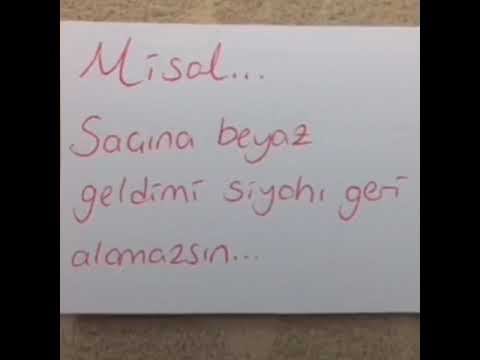 Misal...
Saçına beyaz
geldimi siyahı geri
alamazsın...